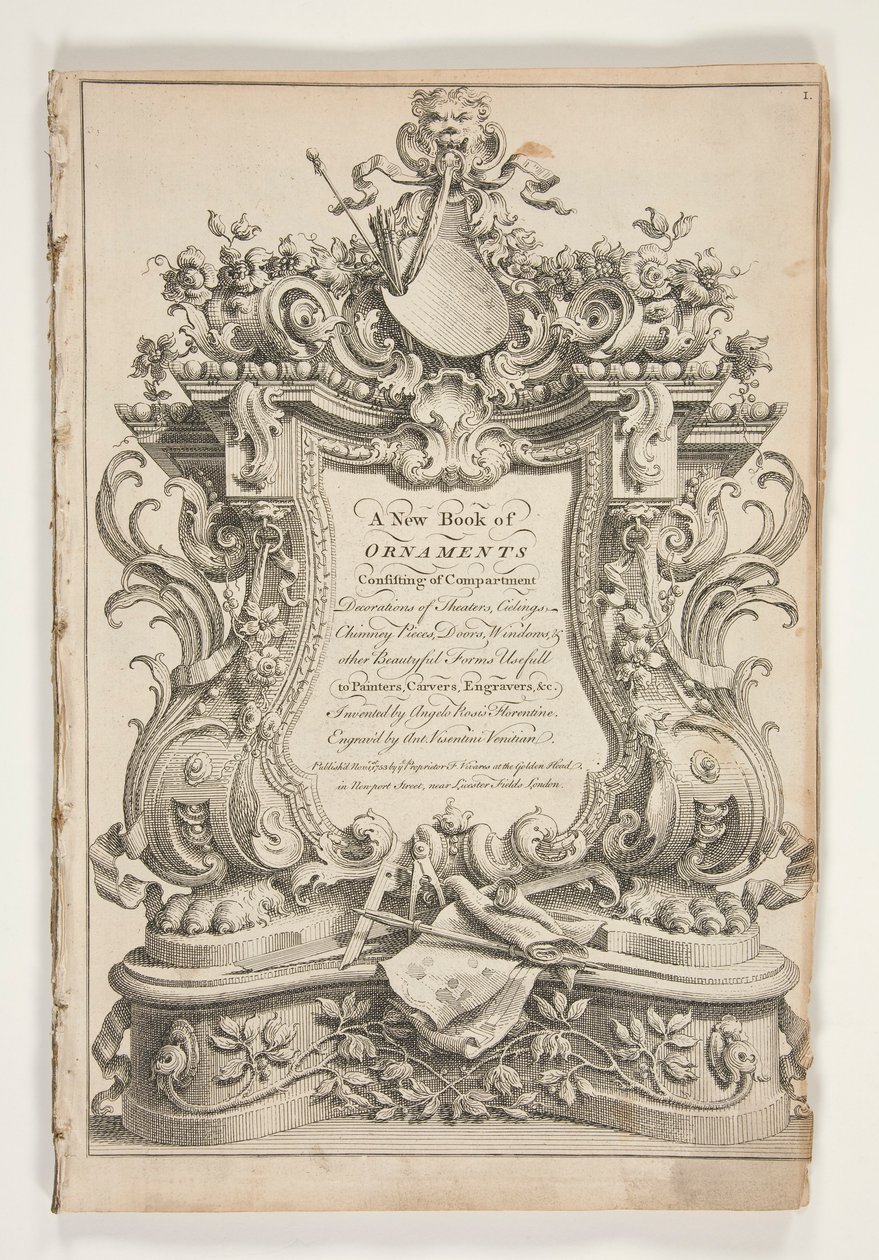 1.
A New Book of
ORNAMENTS
Conſiſting of Compartment
Decorations of Theaters, Cielings,
Chimney Pieces, Doors, Windows, &
other Beautyful Forms Usefull
to Painters, Carvers, Engravers, &c.
Invented by Angelo Rosis Florentine.
Engrav'd by Ant. Visentini Venitian.
Publish'd Nov. 1753 by yᵉ Proprietor F. Vivares at the Golden Head
in Newport Street, near Licester Fields London.